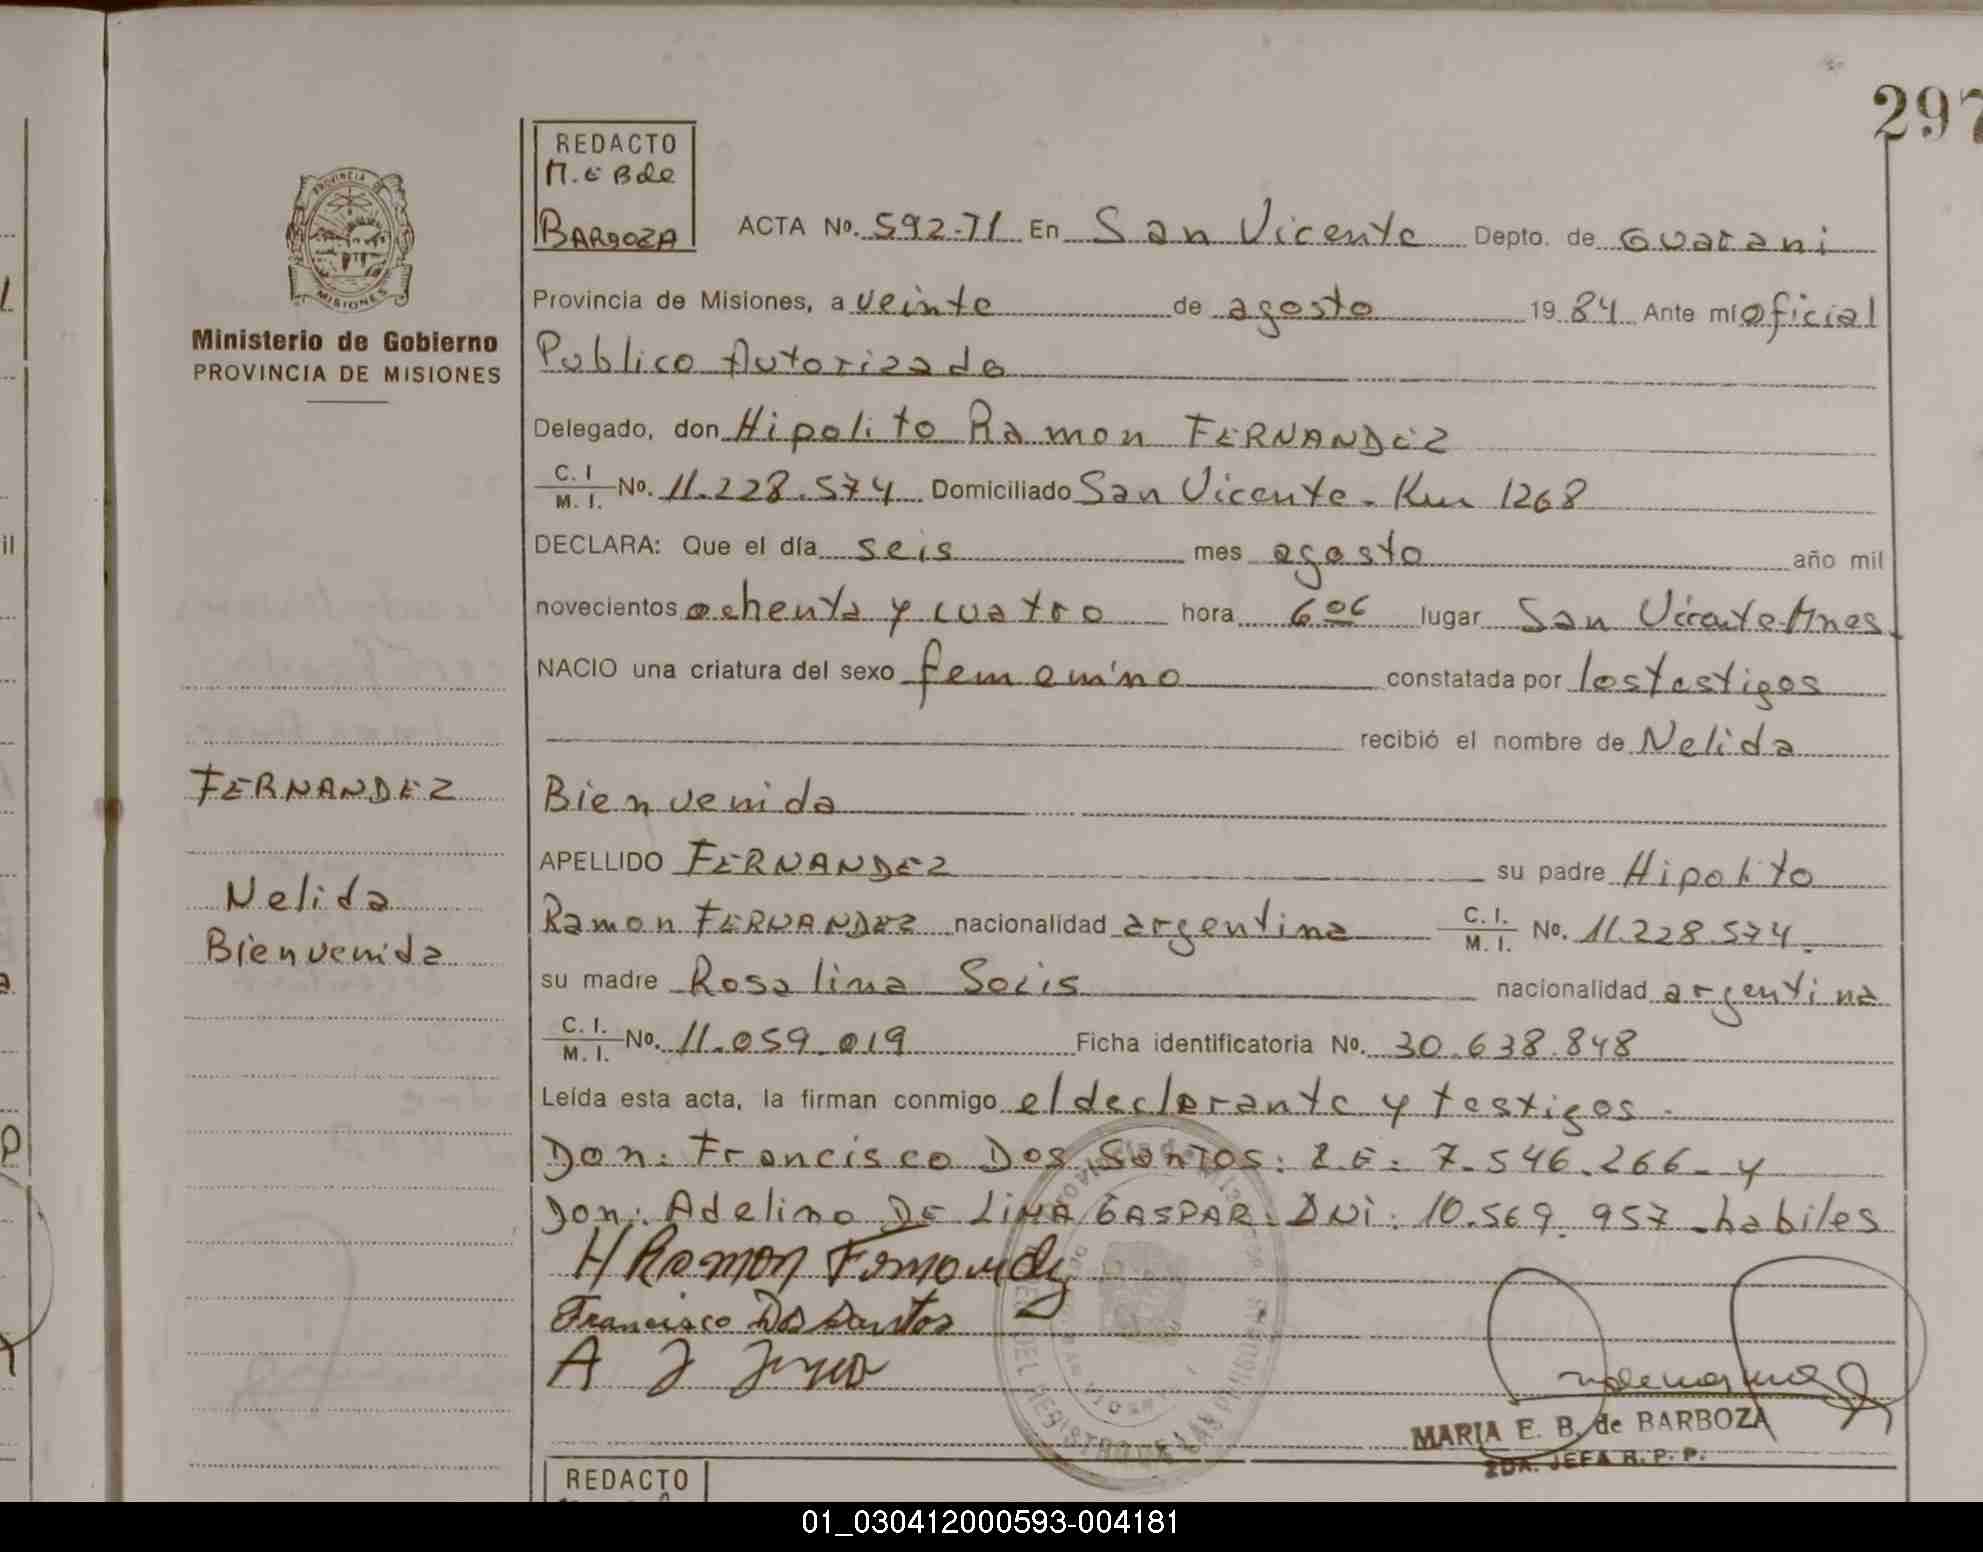 297
REDACTO
M.E B de
BARBOZA
PROVINCIA DE
MISIONES
Ministerio de Gobierno
PROVINCIA DE MISIONES
ACTA No. 592-71 En San Vicente Depto. de Guarani
Provincia de Misiones, a veinte de agosto 1984 Ante mí oficial
Publico Autorizado
Delegado, don Hipolito Ramon FERNANDEZ
C. I. M. I. No. 11.228.574 Domiciliado San Vicente - Km 1268
DECLARA: Que el día seis mes agosto año mil
novecientos ochenta y cuatro hora 6 oc lugar San Vicente Mnes.
NACIO una criatura del sexo femenino constatada por los testigos
recibió el nombre de Nelida
Bienvenida
APELLIDO FERNANDEZ su padre Hipolito
Ramon FERNANDEZ nacionalidad argentina C. I. M. I. No. 11.228.574.
su madre Rosalina Solis nacionalidad argentina
C. I. M. I. No. 11.059.019 Ficha identificatoria No. 30.638.848
Leída esta acta, la firman conmigo el declarante y testigos.
Don: Francisco Dos Santos: L.E: 7.546.266 - y
Don: Adelino DE LIMA GASPAR. DNi: 10.569.957 - habiles
FERNANDEZ
Nelida
Bienvenida
H Ramon Fernandez
Francisco Dos Santos
MARIA E. B. de BARBOZA
2DA. JEFA R. P. P.
REDACTO
01_030412000593-004181